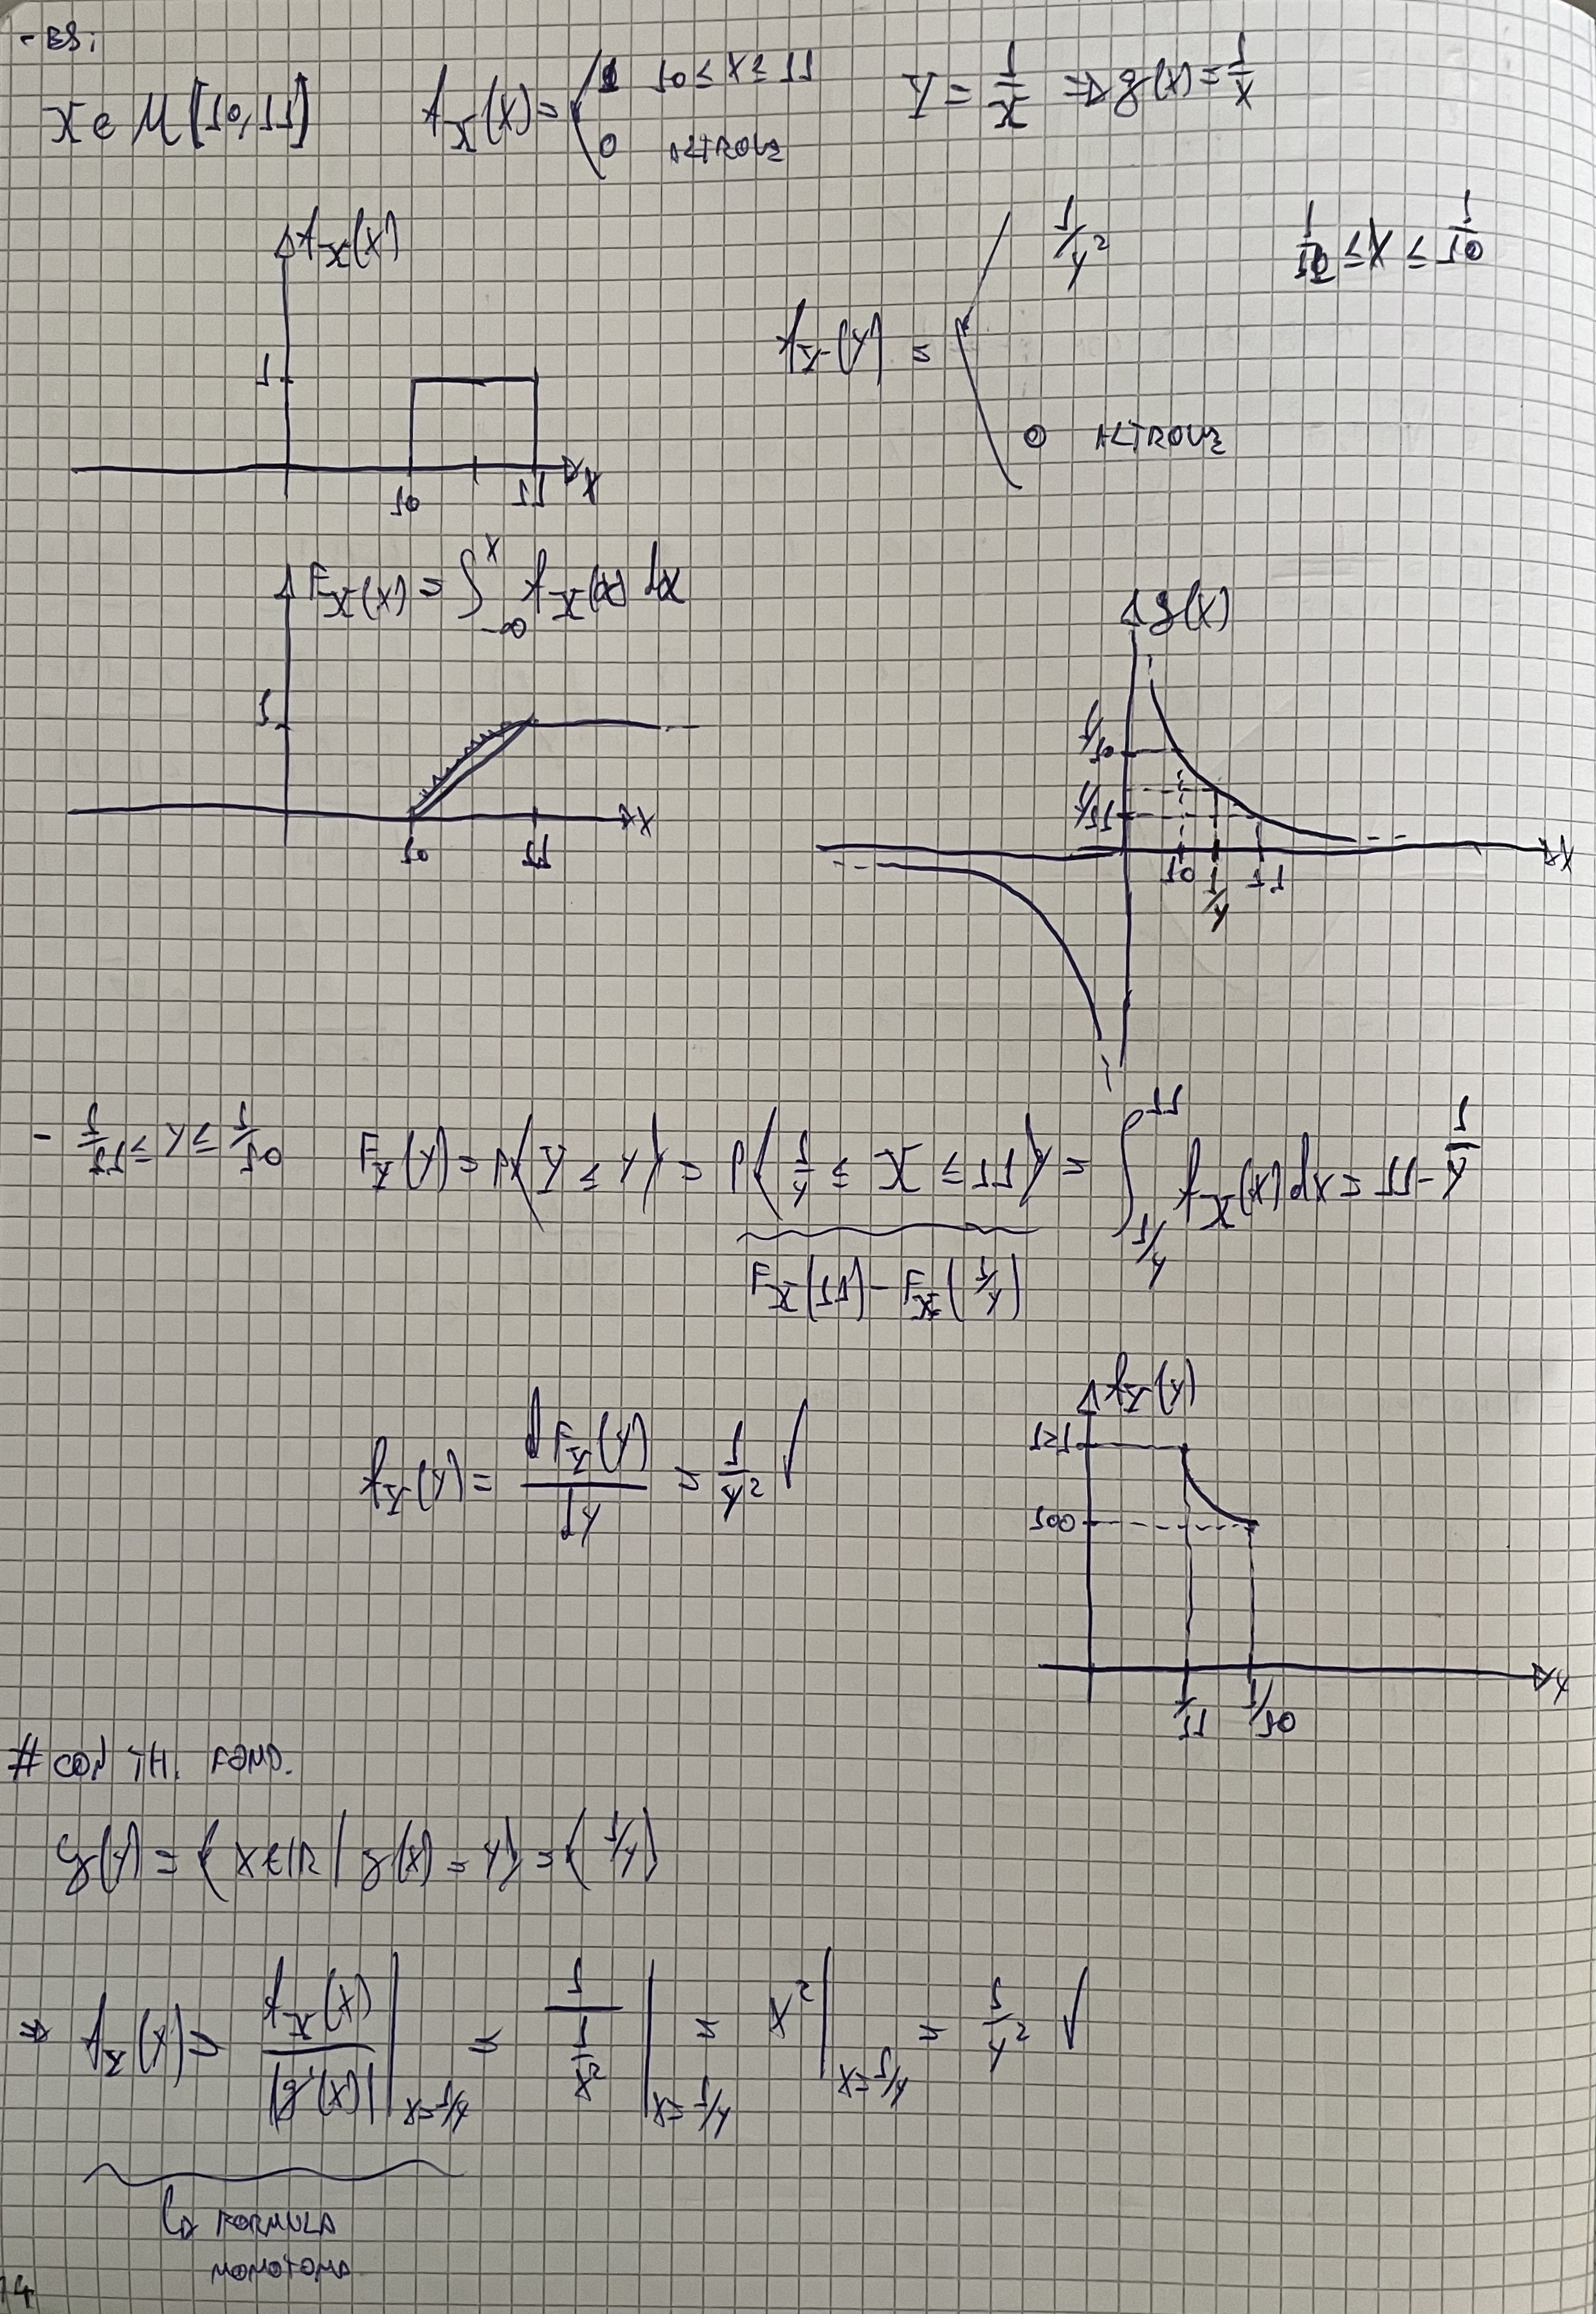 - ES:
X ∈ U[10,11]   f_X(x) = { 1  10 ≤ x ≤ 11   Y = 1/X ⇒ g(x) = 1/x
0  ALTROVE
f_X(x)
1
10  11  x
f_Y(y) = { 1/y²   1/11 ≤ y ≤ 1/10
0  ALTROVE
F_X(x) = ∫_{-∞}^{x} f_X(α) dα
1
10  11  x
g(x)
1/10
1/11
10  1/y  11  x
- 1/11 ≤ y ≤ 1/10   F_Y(y) = P{Y ≤ y} = P{1/y ≤ X ≤ 11} = ∫_{1/y}^{11} f_X(x) dx = 11 - 1/y
F_X(11) - F_X(1/y)
f_Y(y) = dF_Y(y)/dy = 1/y² ✓
f_Y(y)
121
100
1/11  1/10  y
# CON TH. FOND.
g(y) = {x ∈ ℝ | g(x) = y} = {1/y}
⇒ f_Y(x) = f_X(x)/|g'(x)| |_{x=1/y} = 1/(1/x²) |_{x=1/y} = x² |_{x=1/y} = 1/y² ✓
↳ FORMULA
MONOTONA
14